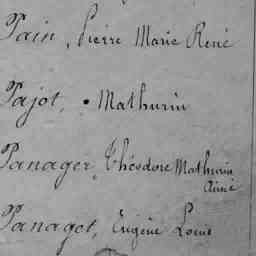 Pain, Pierre Marie René
Pajot, Mathurin
Panager, Théodore Mathurin
Aimé
Panaget, Eugène Louis